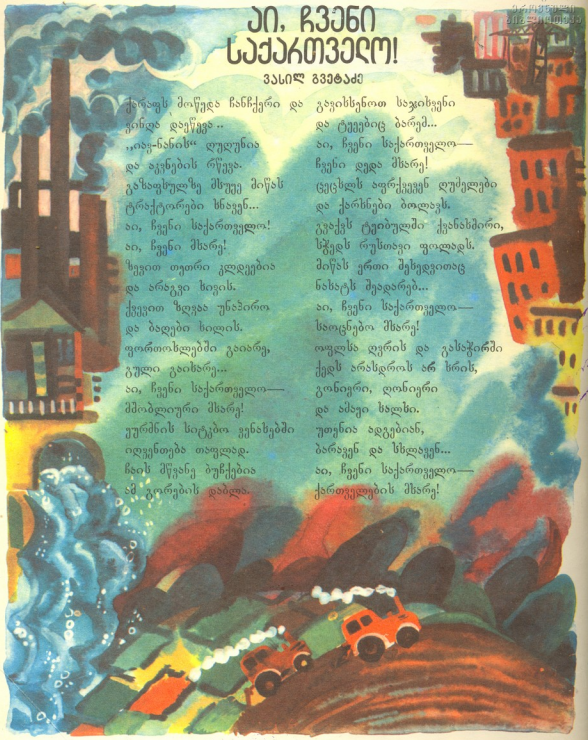 ეროვნული
ბიბლიოთეკა
აი, ჩვენი
საქართველო!
ვასილ გვეტაძე
ქარაფს მოწყდა ჩანჩქერი და
ვინღა დაეწევა..
„იავ-ნანის“ ღუღუნია
და აკვნების რწევა.
გაზაფხულზე მსუყე მიწას
ტრაქტორები ხნავენ...
აი, ჩვენი საქართველო!
აი, ჩვენი მხარე!
ზევით თეთრი კლდეებია
და არაგვი ხივის.
ქვევით ზღვაა უნაპირო
და ბაღები ხილის.
ფორთოხლებში გაიარე,
გული გაიხარე...
აი, ჩვენი საქართველო—
მშობლიური მხარე!
ყურძნის სიტკბო ვენახებში
იღვენთება თაფლად.
ჩაის მწვანე ბუჩქებია
ამ გორების დაბლა.
გავისსენოთ საჯიხვენი
და ტყეებიც ბარემ...
აი, ჩვენი საქართველო—
ჩვენი დედა მხარე!
ცეცხლს აფრქვევენ ღუმელები
და ქარხნები ბოლავს.
გვაქვს ტყიბულში ქვანახშირი,
სჭედს რუსთავი ფოლადს.
მიწას ერთი შეხედვითაც
ნახატს შეადარებ...
აი, ჩვენი საქართველო—
საოცნებო მხარე!
ოფლსა ღვრის და გასაჭირში
ქედს არასდროს არ ხრის,
გონიერი, ღონიერი
და ამაყი ხალხი.
უთენია ადგებიან,
ბარავენ და სხლავენ...
აი, ჩვენი საქართველო—
ქართველების მხარე!